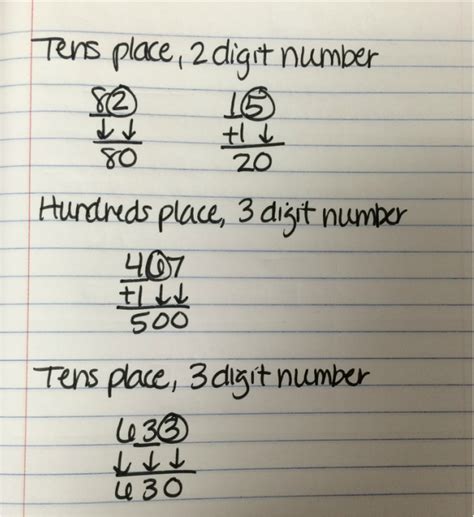 Tens place, 2 digit number
82 15
↓ ↓ +1 ↓
80 20
Hundreds place, 3 digit number
467
+1 ↓ ↓
500
Tens place, 3 digit number
633
↓ ↓ ↓
630